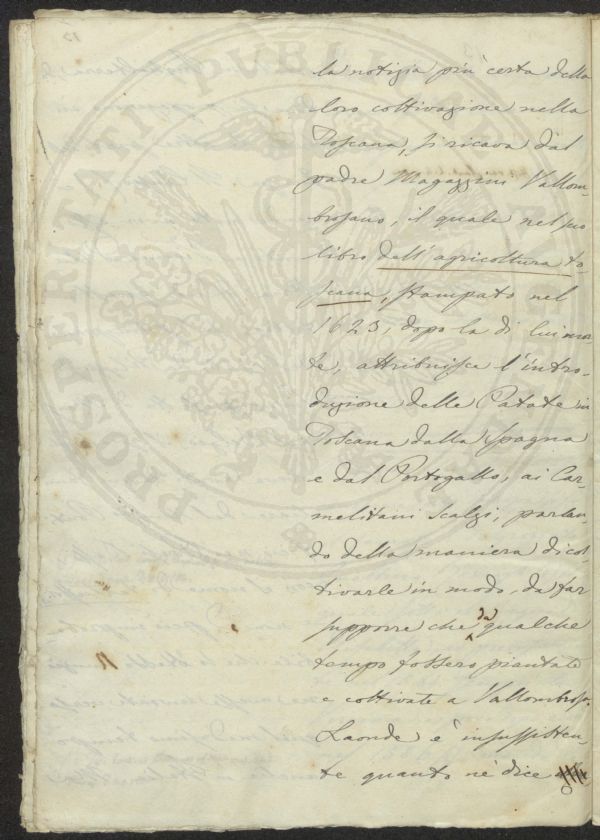 la notizia più certa della
loro coltivazione nella
Toscana, si ricava dal
padre Magazzini Vallom-
brosano, il quale nel suo
libro dell'agricoltura to-
scana, stampato nel
1623, dopo la di lui mor-
te, attribuisce l'intro-
duzione delle Patate in
Toscana dalla Spagna
e dal Portogallo, ai Car-
melitani Scalzi, parlan-
do della maniera di col-
tivarle in modo, da far
supporre che da qualche
tempo fossero piantate
e coltivate a Vallombrosa.
Laonde è insussisten-
te quanto ne dice
PROSPERITATI PUBLICAE AUGENDAE